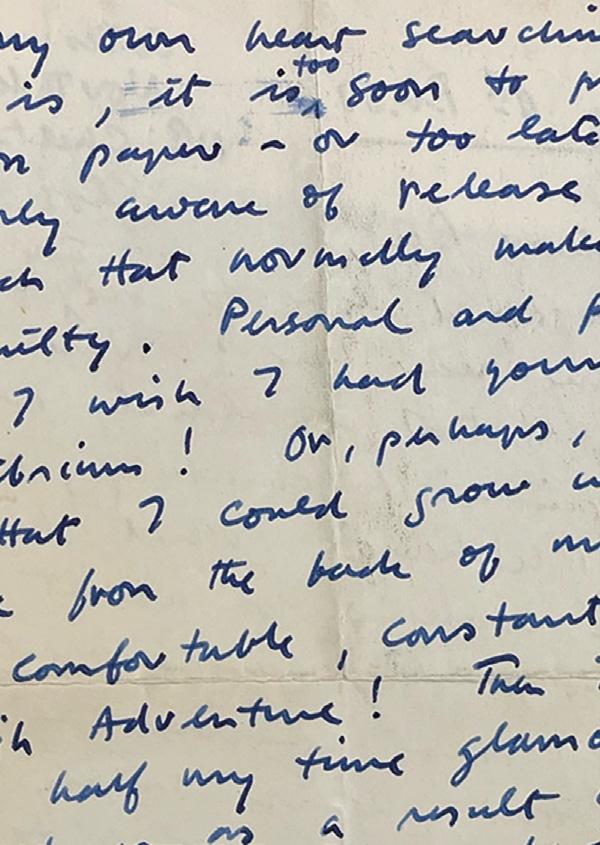 my own heart searchin
is, it is too soon to p
on paper - or too late
ly aware of release
ch that normally make
uilty. Personal and p
I wish I had your
ibrium! Or, perhaps,
that I could grow
from the back of m
comfortable, constant
ih Adventure! Then
half my time glamo
as a result